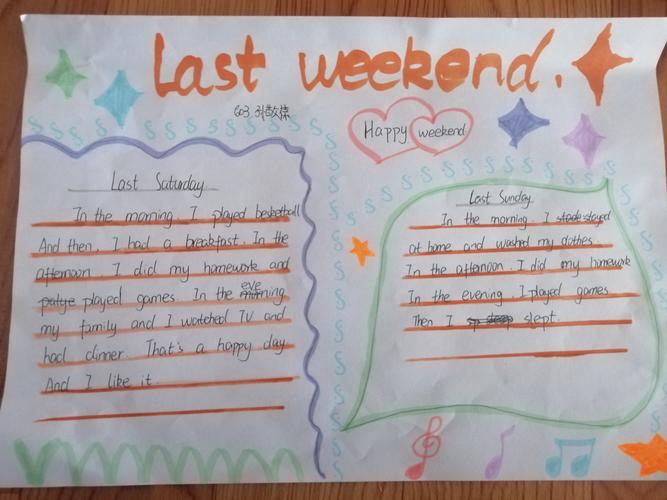 Last weekend.
603
Happy weekend
Last Saturday
In the morning. I played basketball
And then. I had a breakfast. In the
afternoon. I did my homework and
played games. In the evening
my family and I watched TV and
had dinner. That's a happy day
And I like it.
Last Sunday
In the morning. I stayed
at home and washed my clothes.
In the afternoon. I did my homework
In the evening. I played games.
Then I slept.